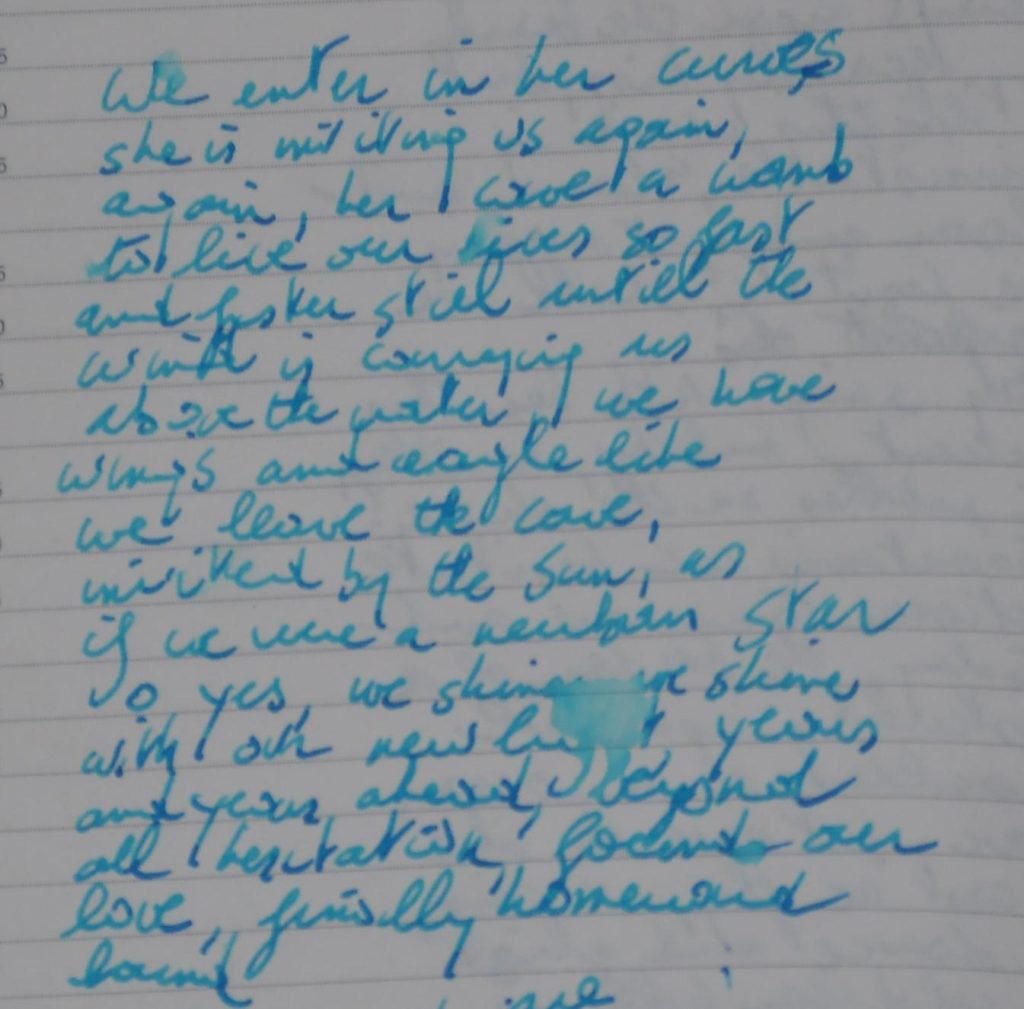 We enter in her curves
she is inviting us again,
again, her cave a womb
to live our lives so fast
and faster still untill the
wind is carrying us
above the water, we have
wings and eagle like
we leave the cave,
invited by the Sun, as
if we were a newborn star
o yes, we shine we shine
with our new light, years
and years ahead, beyond
all hesitation, our
love, finally homeward
bound